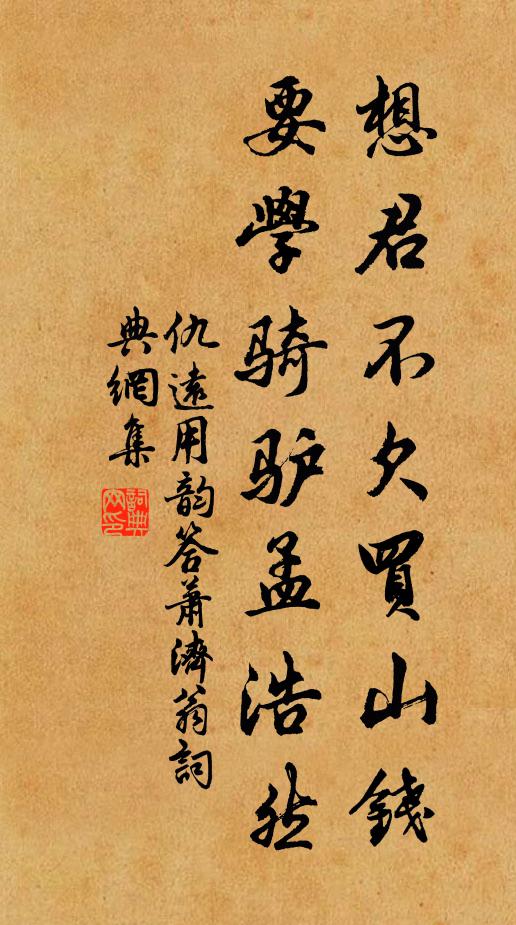 想君不欠買山錢
要學骑驴孟浩然
仇遠用韵答蕭濟翁詞
典網集
詞典網印